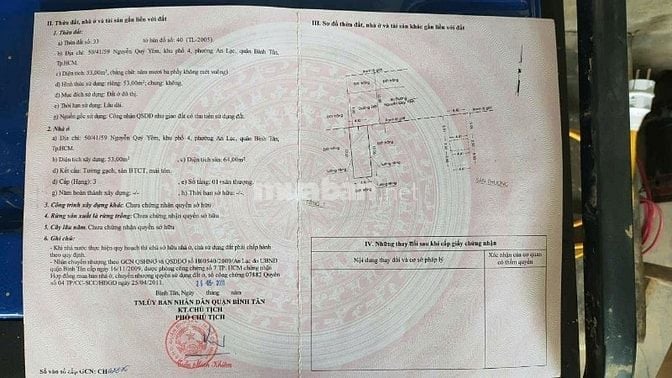 II. Thửa đất, nhà ở và tài sản gắn liền với đất
1. Thửa đất:
a) Thửa đất số: 33 tờ bản đồ số: 40 (TL-2005).
b) Địa chỉ: 50/41/59 Nguyễn Quý Yêm, khu phố 4, phường An Lạc, quận Bình Tân,
Tp.HCM.
c) Diện tích: 53,00m², (bằng chữ: năm mươi ba phẩy không mét vuông);
d) Hình thức sử dụng: riêng: 53,00m²; chung: không.
đ) Mục đích sử dụng: Đất ở đô thị.
e) Thời hạn sử dụng: Lâu dài.
g) Nguồn gốc sử dụng: Công nhận QSDĐ như giao đất có thu tiền sử dụng đất.
2. Nhà ở
a) Địa chỉ: 50/41/59 Nguyễn Quý Yêm, khu phố 4, phường An Lạc, quận Bình Tân,
Tp.HCM.
b) Diện tích xây dựng: 53,00m² c) Diện tích sàn: 64,00m²
d) Kết cấu: Tường gạch, sàn BTCT, mái tôn.
đ) Cấp (Hạng): 3 e) Số tầng: 01+sân thượng.
g) Năm hoàn thành xây dựng: -/- h) Thời hạn sở hữu: -/-
3. Công trình xây dựng khác: Chưa chứng nhận quyền sở hữu
4. Rừng sản xuất là rừng trồng: Chưa chứng nhận quyền sở hữu
5. Cây lâu năm: Chưa chứng nhận quyền sở hữu
6. Ghi chú:
- Khi nhà nước thực hiện quy hoạch thì chủ sở hữu nhà ở, chủ sử dụng đất phải chấp hành
theo quy định.
- Nhận chuyển nhượng theo GCN QSHNO và QSDĐO số do UBND
quận Bình Tân cấp ngày 16/11/2009, được phòng công chứng số 7 TP. HCM chứng nhận
Hợp đồng mua bán nhà ở, chuyển nhượng quyền sử dụng đất ở, số công chứng 07882 Quyển
số 04 TP/CC-SCC/HĐGD ngày 25/04/2011.
Bình Tân, ngày tháng năm
TM.ỦY BAN NHÂN DÂN QUẬN BÌNH TÂN
KT.CHỦ TỊCH
PHÓ CHỦ TỊCH
Số vào sổ cấp GCN: CH
III. Sơ đồ thửa đất, nhà ở và tài sản khác gắn liền với đất
SÂN THƯỢNG
IV. Những thay đổi sau khi cấp giấy chứng nhận
Nội dung thay đổi và cơ sở pháp lý
Xác nhận của cơ quan
có thẩm quyền